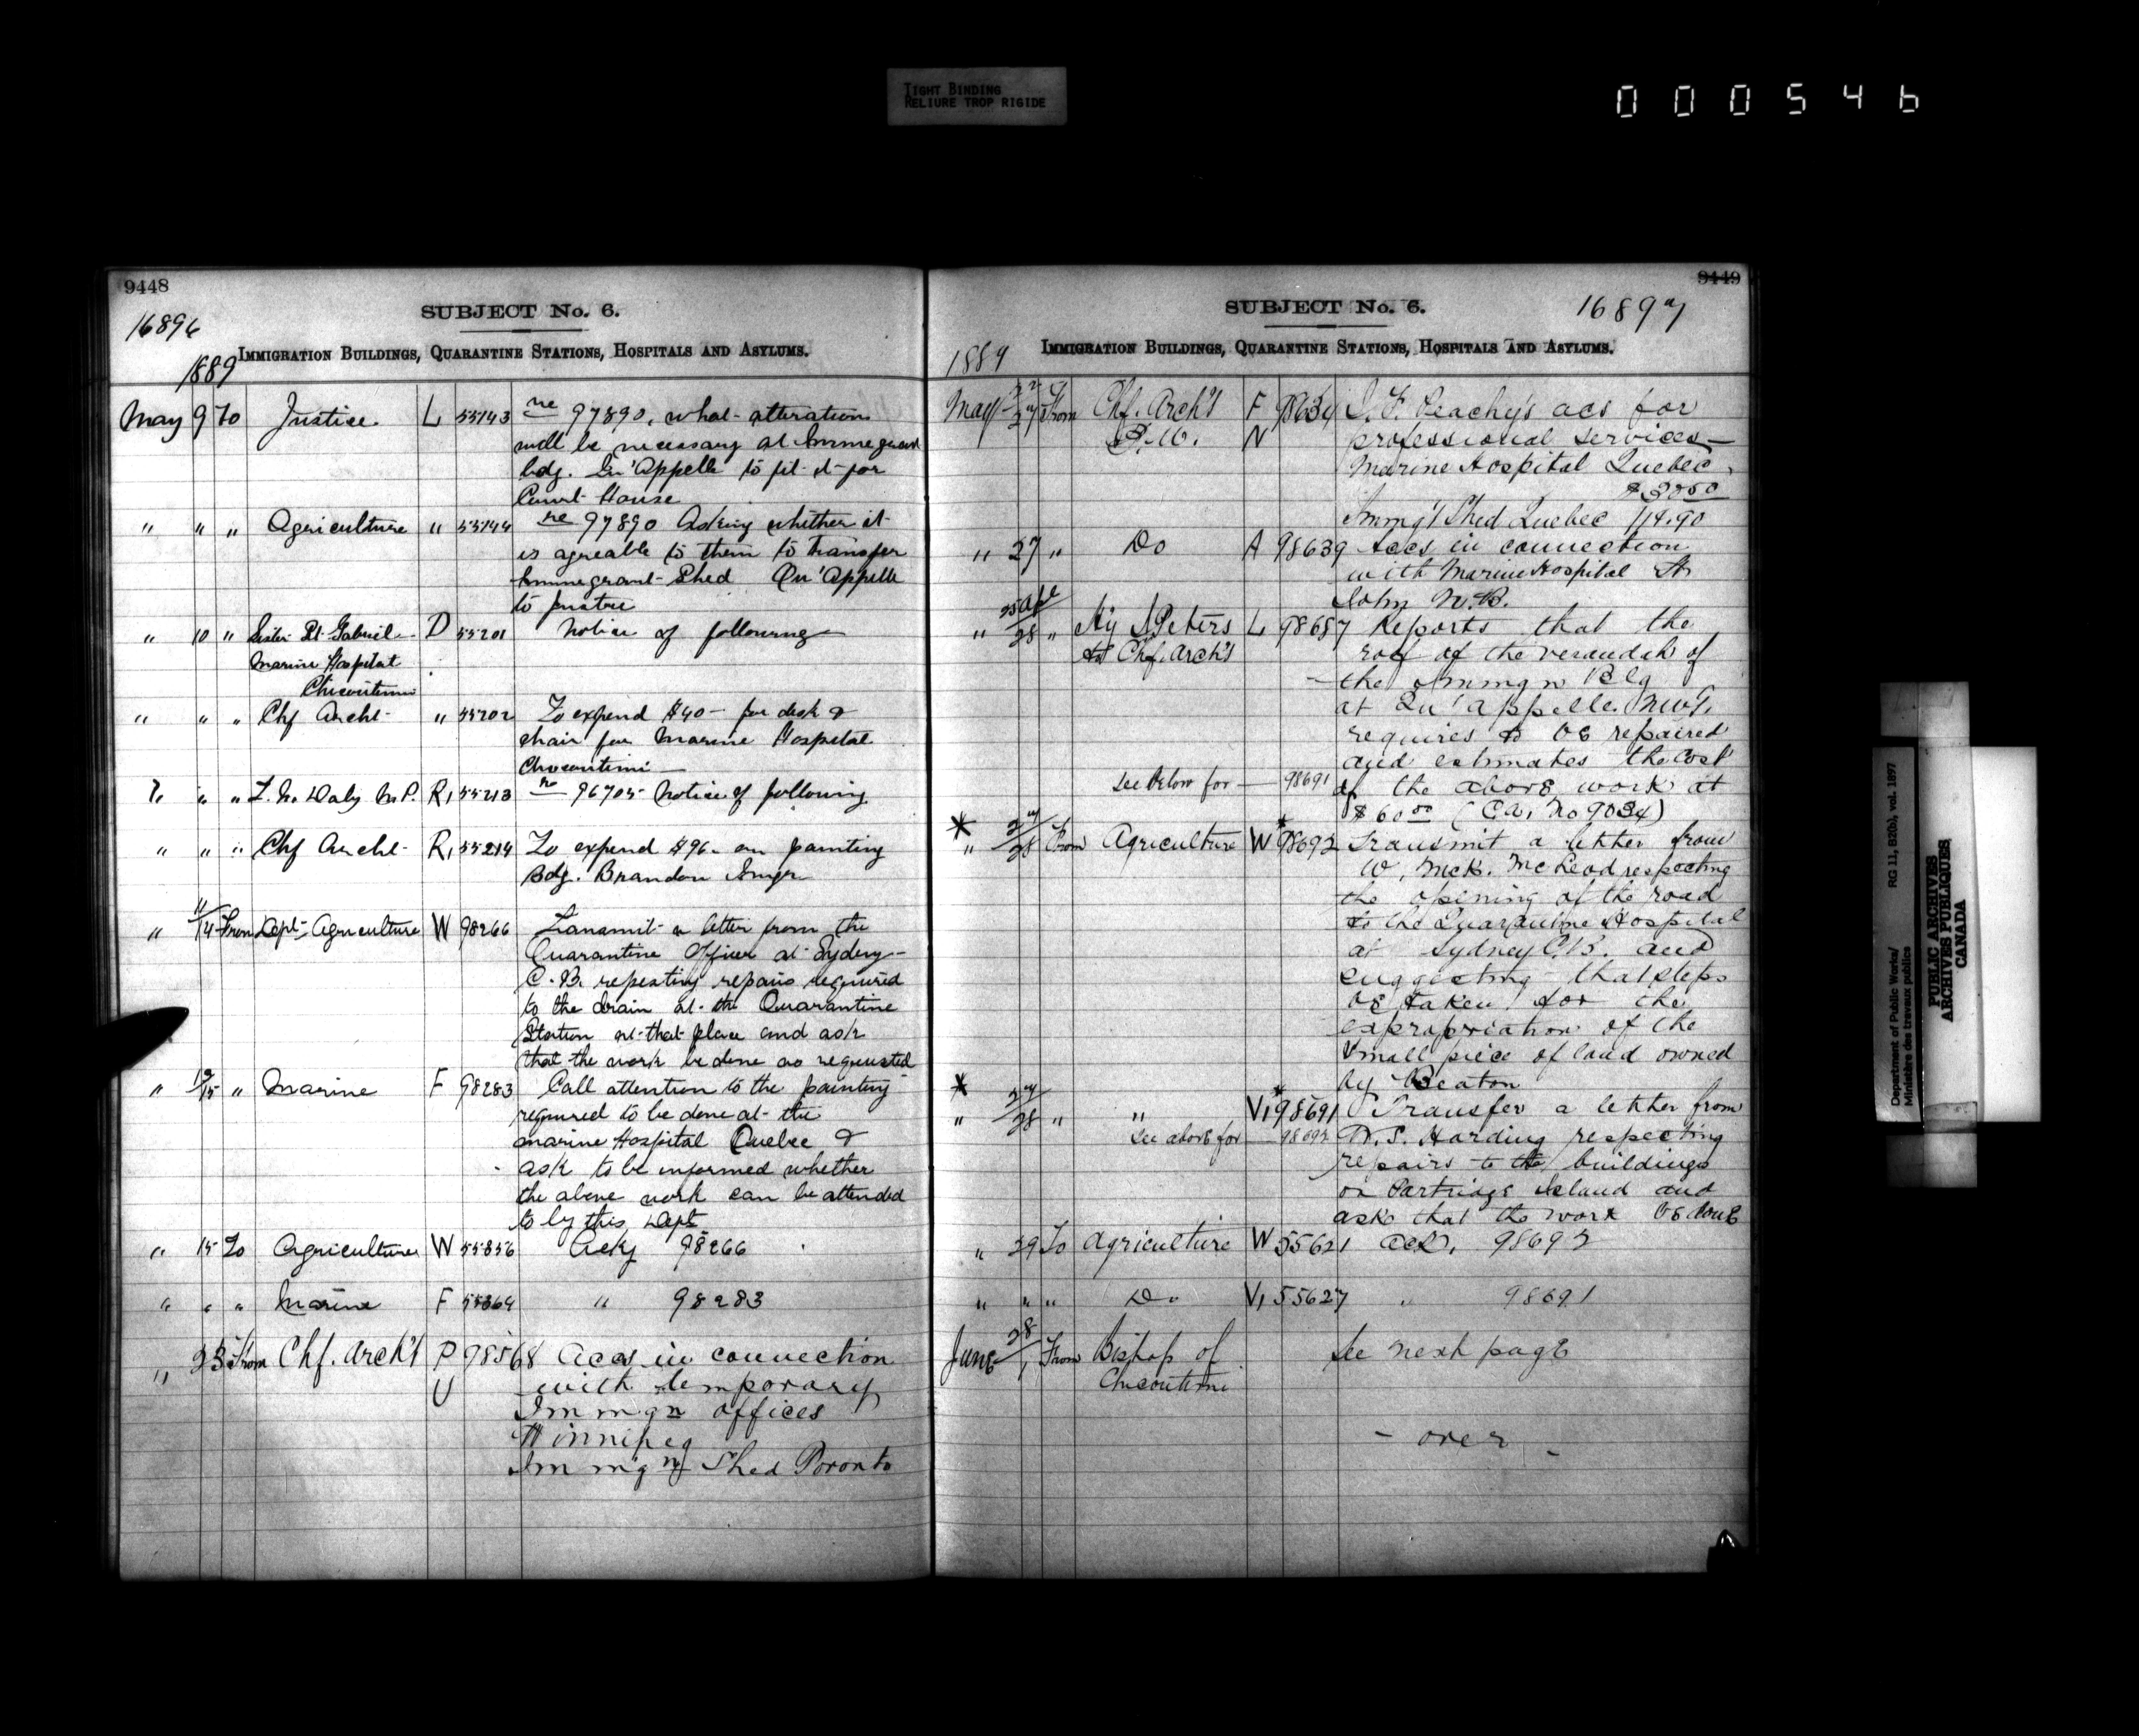 TIGHT BINDING
RELIURE TROP RIGIDE
000546
9448
SUBJECT No. 6.
16896
IMMIGRATION BUILDINGS, QUARANTINE STATIONS, HOSPITALS AND ASYLUMS.
1889
May 9 To Justice L 55143 re 97890, what alteration
will be necessary at Immegrant
bdg. Qu'Appelle to fit it for
Court House
" " " Agriculture " 55144 re 97890 Asking whether it
is agreable to them to transfer
Immegrant Shed Qu'Appelle
to Justice
" 10 " Sister St. Gabriel D 55201 Notice of following
Marine Hospital
Chicoutimi
" " " Chf Archt " 55202 To expend $40- for desk &
chair for Marine Hospital
Chicoutimi
" " " T. M. Daly M.P. R1 55213 re 96705 Notice of following
" " " Chf Archt R1 55214 To expend $96. on painting
Bdg. Brandon Immgn
" 11/14 From Dept. Agriculture W 98266 Transmit a letter from the
Quarantine Officer at Sydney
C.B. repeating repairs required
to the drain at the Quarantine
Station at that place and ask
that the work be done as requested
" 12/15 " Marine F 98283 Call attention to the painting
required to be done at the
Marine Hospital Quebec &
ask to be informed whether
the above work can be attended
to by this Dept
" 15 To Agriculture W 55356 Ackg 98266
" " " Marine F 55364 " 98283
" 23 From Chf. Arch't P 98568 Accs in connection
U with temporary
Immgn offices
Winnipeg
Immg'n Shed Toronto
9449
SUBJECT No. 6.
16897
IMMIGRATION BUILDINGS, QUARANTINE STATIONS, HOSPITALS AND ASYLUMS.
1889
May 27 From Chf. Arch't F 98634 J. F. Peachy's acs for
N professional services—
Marine Hospital Quebec
$3050
Immg't Shed Quebec 114.90
" 27 " Do A 98639 Accs in connection
with Marine Hospital St
John N.B.
25 Apl
" 28 " Hy J Peters L 98687 Reports that the
to Chf. Arch't roof of the verandah of
the Immgn Blg
at Qu'appelle. NWT.
requires to be repaired
and estimates the cost
See below for — 98691 of the above work at
$60.00 (Ca. No 9034)
* " 27/28 From Agriculture W *98692 Transmit a letter from
W. McK. McLeod respecting
the opening of the road
to the Quarantine Hospital
at Sydney C.B. and
suggesting that steps
be taken for the
expropriation of the
small piece of land owned
by Beaton
* " 27/28 " " V1 *98691 Transfer a letter from
See above for — 98692 W. S. Harding respecting
repairs to the buildings
on Partridge Island and
asks that the work be done
" 29 To Agriculture W 55621 ack. 98692
" " " Do V1 55627 " 98691
June 28/1 From Bishop of See next page
Chicoutimi
- over -
Department of Public Works/
Ministère des travaux publics
RG 11, B2(b), vol. 1897
PUBLIC ARCHIVES
ARCHIVES PUBLIQUES
CANADA